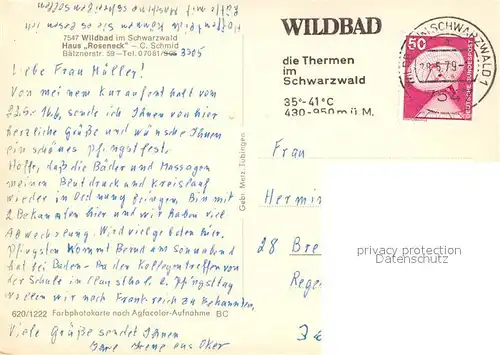 7547 Wildbad im Schwarzwald
Haus „Roseneck" – C. Schmid
Bätznerstr. 59 – Tel. 07081/ 3305
Liebe Frau Müller!
Von meinem Kuraufenthalt vom
sende ich Ihnen von hier
herzliche Grüße und wünsche Ihnen
ein schönes Pfingstfest.
Hoffe, daß die Bäder und Massagen
meinen Blutdruck und Kreislauf
wieder in Ordnung bringen. Bin mit
2 Bekannten hier und wir haben viel
Abwechslung. Wird viel geboten hier.
Pfingsten kommt Bernd am Sonnabend
hat bei Baden-Baden Kollegentreffen von
der Schule in Clausthal. 2. Pfingsttag
wollen wir nach Frankreich zu Bekannten.
620/1222 Farbphotokarte nach Agfacolor-Aufnahme BC
Viele Grüße sendet Ihnen
Irene aus Oker
Gebr. Metz, Tübingen
WILDBAD
die Thermen
im
Schwarzwald
35°-41°C
430-950 m ü. M.
SCHWARZWALD 1
.5.79
50
DEUTSCHE BUNDESPOST
Frau
Hermin
28 Bre
Rege
privacy protection
Datenschutz